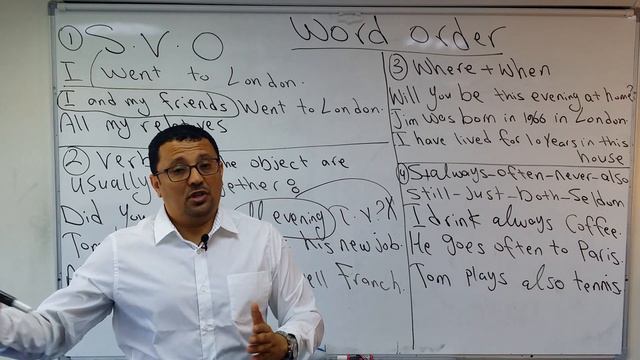 Word order
① S.V.O
I went to London.
I and my friends went to London.
All my relatives
② Verb the object are
usually gether:
Did you ll evening T.V?X
Tom his new job.
ell Franch.
③ Where + When
Will you be this evening at home?
Jim was born in 1966 in London.
I have lived for 10 years in this
house
④ always-often-never-also
still-just-both-Seldum
I drink always Coffee.
He goes often to Paris.
Tom plays also tennis.